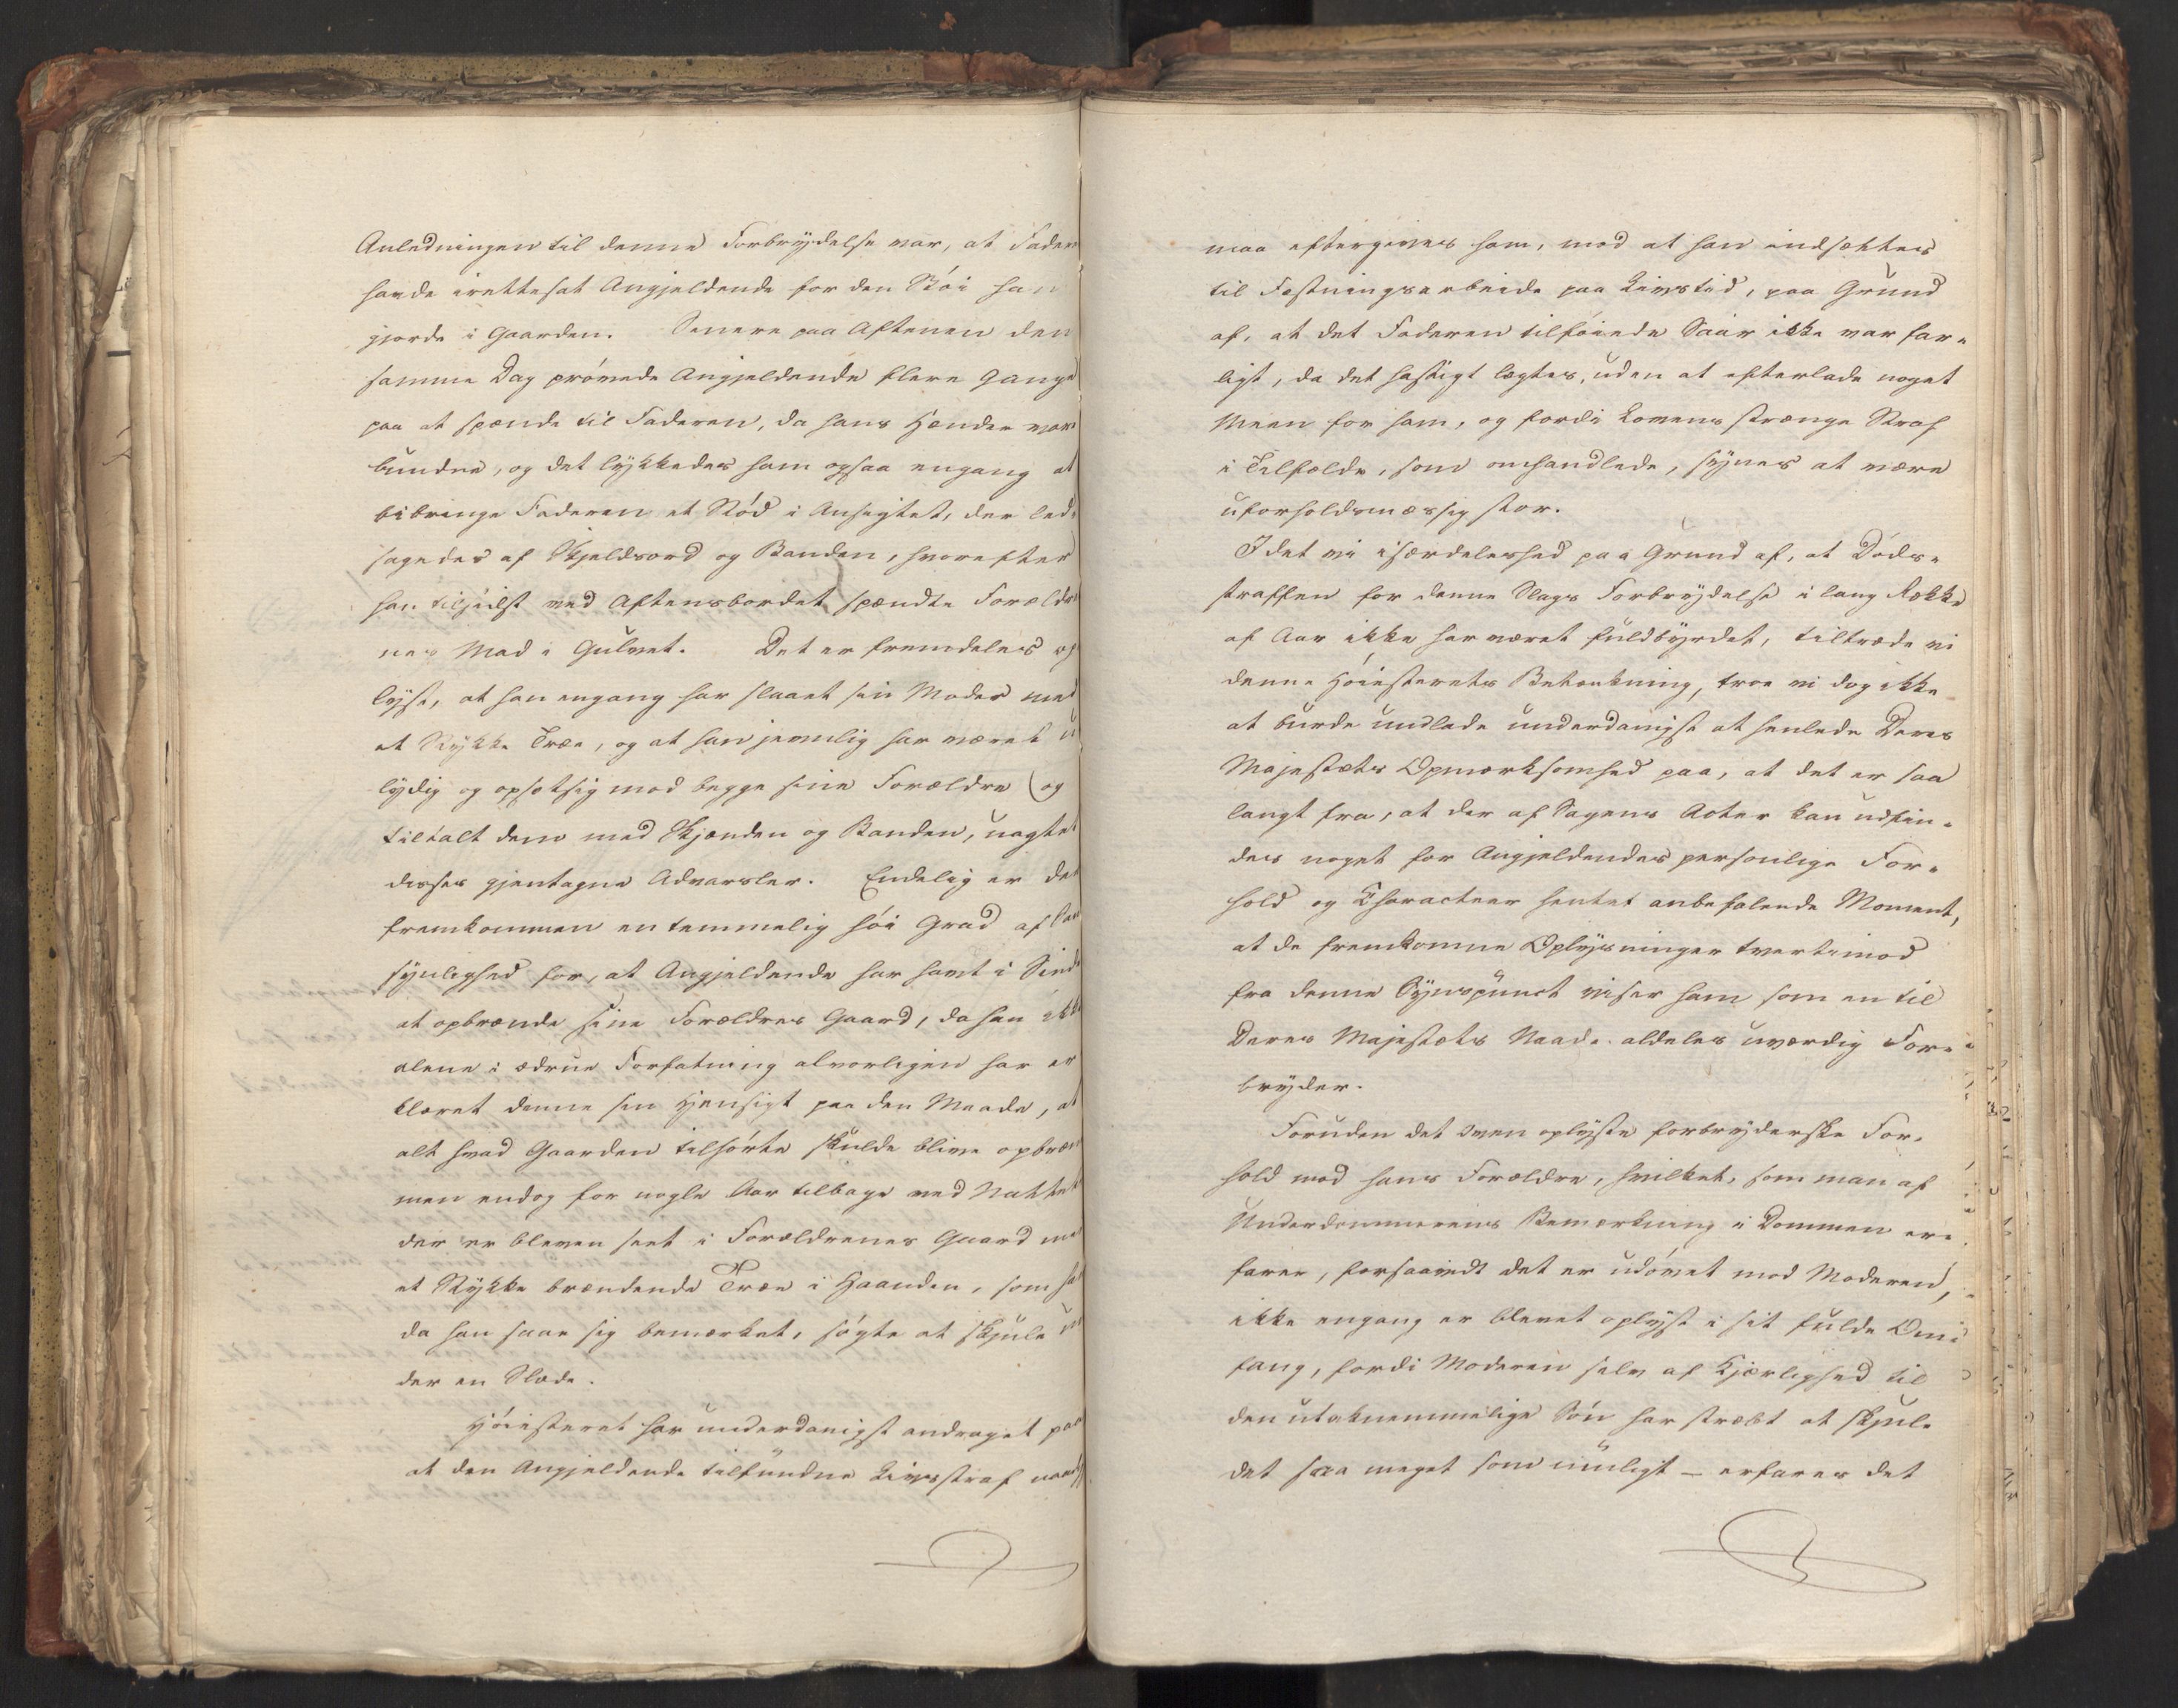 Anledningen til denne Forbrydelse var, at Faderen
havde irettesat Angjeldende for den Støi han
gjorde i Gaarden. Senere paa Aftenen den
samme Dag prøvede Angjeldende flere Gange
paa at spænde til Faderen, da hans Hænder vare
bundne, og det lykkedes ham ogsaa engang at
bibringe Faderen et Stød i Ansigtet, der led-
sagedes af Skjeldsord og Banden, hvorefter
han tilsidst ved Aftensbordet spændte Forældre
nes Mad i Gulvet. Det er fremdeles op
lyst, at han engang har slaaet sin Moder med
et Stykke Træe, og at han jevnlig har været u
lydig og opsætsig mod begge sine Forældre (og
tiltalt dem med Skjænden og Banden, uagtet
disses gjentagne Advarsler. Endelig er det
fremkommen en temmelig høi Grad af San
synlighed for, at Angjeldende har havt i Sinde
at opbrænde sine Forældres Gaard, da han ikke
alene i ædrue Forfatning alvorligen har er
klæret denne sin Hensigt paa den Maade, at
alt hvad Gaarden tilhørte skulde blive opbræn
men endog for nogle Aar tilbage ved Nattet
der er bleven seet i Forældrenes Gaard med
et Stykke brændende Træe i Haanden, som han
da han saae sig bemærket, søgte at skjule un
der en Slæde.
Høiesteret har underdanigst andraget paa
at den Angjeldende tilfundne Livsstraf naadigst
maa eftergives ham, mod at han indsættes
til Fæstningsarbeide paa Livstid, paa Grund
af, at det Faderen tilføiede Saar ikke var far-
ligt, da det hastigt lægtes, uden at efterlade noget
Meen for ham, og fordi Lovens strænge Straf
i Tilfælde, som omhandlede, synes at være
uforholdsmæssig stor.
Idet vi isærdeleshed paa Grund af, at Døds-
straffen for denne Slags Forbrydelse i lang Række
af Aar ikke har været fuldbyrdet, tiltræde vi
denne Høiesterets Betænkning, troe vi dog ikke
at burde undlade underdanigst at henlede Deres
Majestæts Opmærksomhed paa, at det er saa
langt fra, at der af Sagens Acter kan udfin-
des noget for Angjeldendes personlige For-
hold og Characteer hentet anbefalende Moment,
at de fremkomne Oplysninger tvertimod
fra denne Synspunct viser ham som en til
Deres Majestæts Naade aldeles uværdig For-
bryder.
Foruden det oven oplyste forbryderske For-
hold mod hans Forældre, hvilket, som man af
Underdommerens Bemærkning i Dommen er-
farer, forsaavidt det er udøvet mod Moderen,
ikke engang er blevet oplyst i sit fulde Om-
fang, fordi Moderen selv af Kjærlighed til
den utaknemmelige Søn har stræbt at skjule
det saa meget som muligt _ erfares det